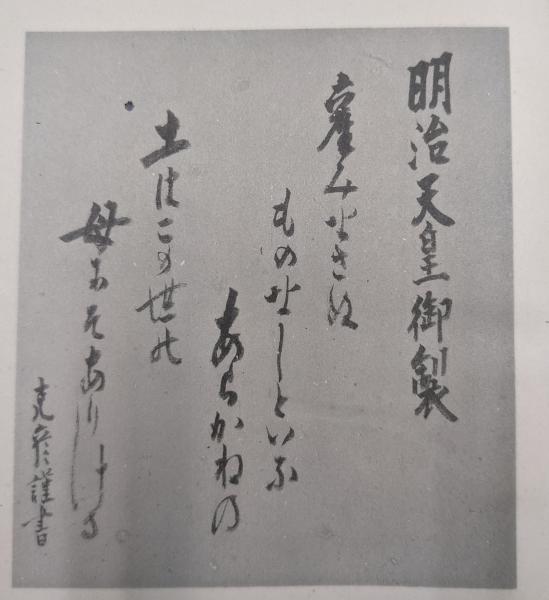 明治天皇御製
産みなさぬ
ものなしといふ
あらかねの
土はこの世の
母にそありける
克彦謹書